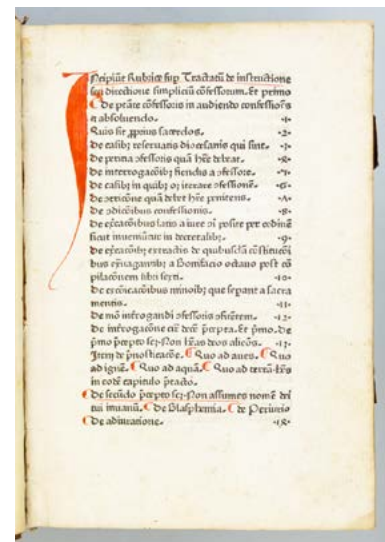 Incipiūt Rubrice sup Tractatū de instructione
seu directione simpliciū cōfessorum. Et primo
De ptāte cōfessoris in audiendo confessiōs
et absoluendo. ·1·
Quis sit pprius sacerdos. ·2·
De casibꝫ reseruatis diocesanis qui sint. ·3·
De peritia ↄfessoris quā hr̄e debeat. ·4·
De interrogacōibꝫ fiendis a ↄfessore. ·5·
De casibꝫ in quibꝫ oꝫ iterare ↄfessionē. ·6·
De ↄtricōne quā debet hr̄e penitens. ·7·
De ↄdicōibus confessionis. ·8·
De exc̄acōibus latis a iure ut posite per ordinē
sicut inueniūtur in decretalibꝫ. ·9·
De exc̄acōibꝫ extractis de quibusdā cōstitucōi
bus exuagantibꝫ a Bonifacio octauo post cō
pilacōnem libri sexti. ·10·
De excōicacōibus minoribꝫ que sepant a sacra
mentis. ·11·
De mō interrogandi ↄfessoris ↄfitentem. ·12·
De interogacōne circa decē p̄cepta. Et p̄mo de
p̄mo p̄cepto scꝫ Non habeas deos alienos. ·13·
Item de pnosticacōe. Quo ad aues. Quo
ad ignē. Quo ad aquā. Quo ad terrā
in eodē capitulo ptacto.
De secūdo p̄cepto scꝫ Non assumes nomē dei
tui inuanū. De Blasphemia. De Periurio
De adiuratione. ·14·